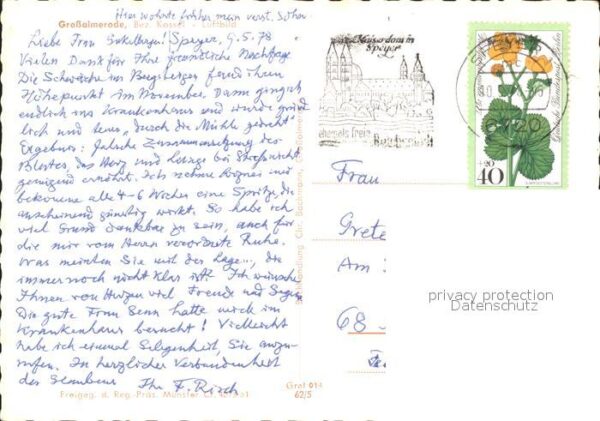 Hier wohnte früher mein verst. Sohn
Großalmerode, Bez. Kassel - Luftbild
Liebe Frau Speyer, 9.5.78
Vielen Dank für Ihre freundliche Nachfrage
Die Schwäche im erfand ihren
Höhepunkt im November. Dann ging ich
endlich ins Krankenhaus und wurde gründ
lich und "durch die Mühle gedreht"
Ergebnis: falsche Zusammensetzung des
Blutes, das Herz und
genügend ernährt. Ich nehme und
bekomme alle 4-6 Wochen eine Spritze, die
anscheinend günstig wirkt. So habe ich
viel Grund dankbar zu sein, auch für
die mir vom Herrn verordnete Ruhe.
Was meinten Sie mit der Lage..., die
immer noch nicht klar ist? Ich wünsche
Ihnen von Herzen viel Freude und Segen
Die gute Frau Senn hatte mich im
Krankenhaus besucht! Vielleicht
habe ich einmal Gelegenheit, Sie anzu-
rufen. In herzlicher Verbundenheit
des Glaubens Ihr F. Risch
Freigeg. d. Reg.-Präs. Münster
Graf 014
62/5
Kaiserdom in
Speyer
ehemals freie
Reichsstadt
SPEYER
6720
Deutsche Bundespost
+20
40
Frau
Grete
Am
68
privacy protection
Datenschutz